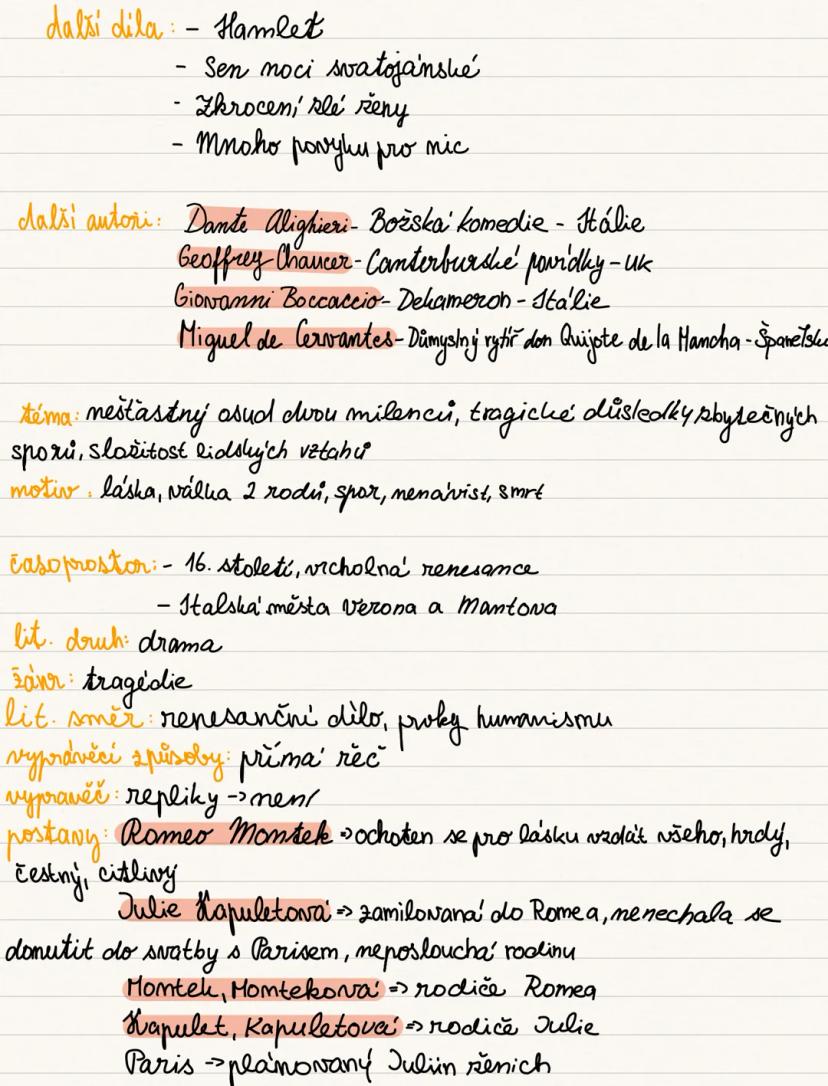 další díla: - Hamlet
- Sen noci svatojánské
- Zkrocení zlé ženy
- Mnoho povyku pro nic
další autoři: Dante Alighieri - Božská komedie - Itálie
Geoffrey Chaucer - Canterburské povídky - UK
Giovanni Boccaccio - Dekameron - Itálie
Miguel de Cervantes - Důmyslný rytíř don Quijote de la Mancha - Španělsko
téma: nešťastný osud dvou milenců, tragické důsledky zbytečných
sporů, složitost lidských vztahů
motiv: láska, válka 2 rodů, spor, nenávist, smrt
časoprostor: - 16. století, vrcholná renesance
- Italská města Verona a Mantova
lit. druh: drama
žánr: tragédie
lit. směr: renesanční dílo, prvky humanismu
vyprávěcí způsoby: přímá řěč
vypravěč: repliky -> není
postavy: Romeo Montek => ochoten se pro lásku vzdát všeho, hrdý,
čestný, citlivý
Julie Kapuletová => zamilovaná do Romea, nenechala se
donutit do svatby s Parisem, neposlouchá rodinu
Montek, Monteková => rodiče Romea
Kapulet, Kapuletová => rodiče Julie
Paris -> plánovaný Juliin ženich